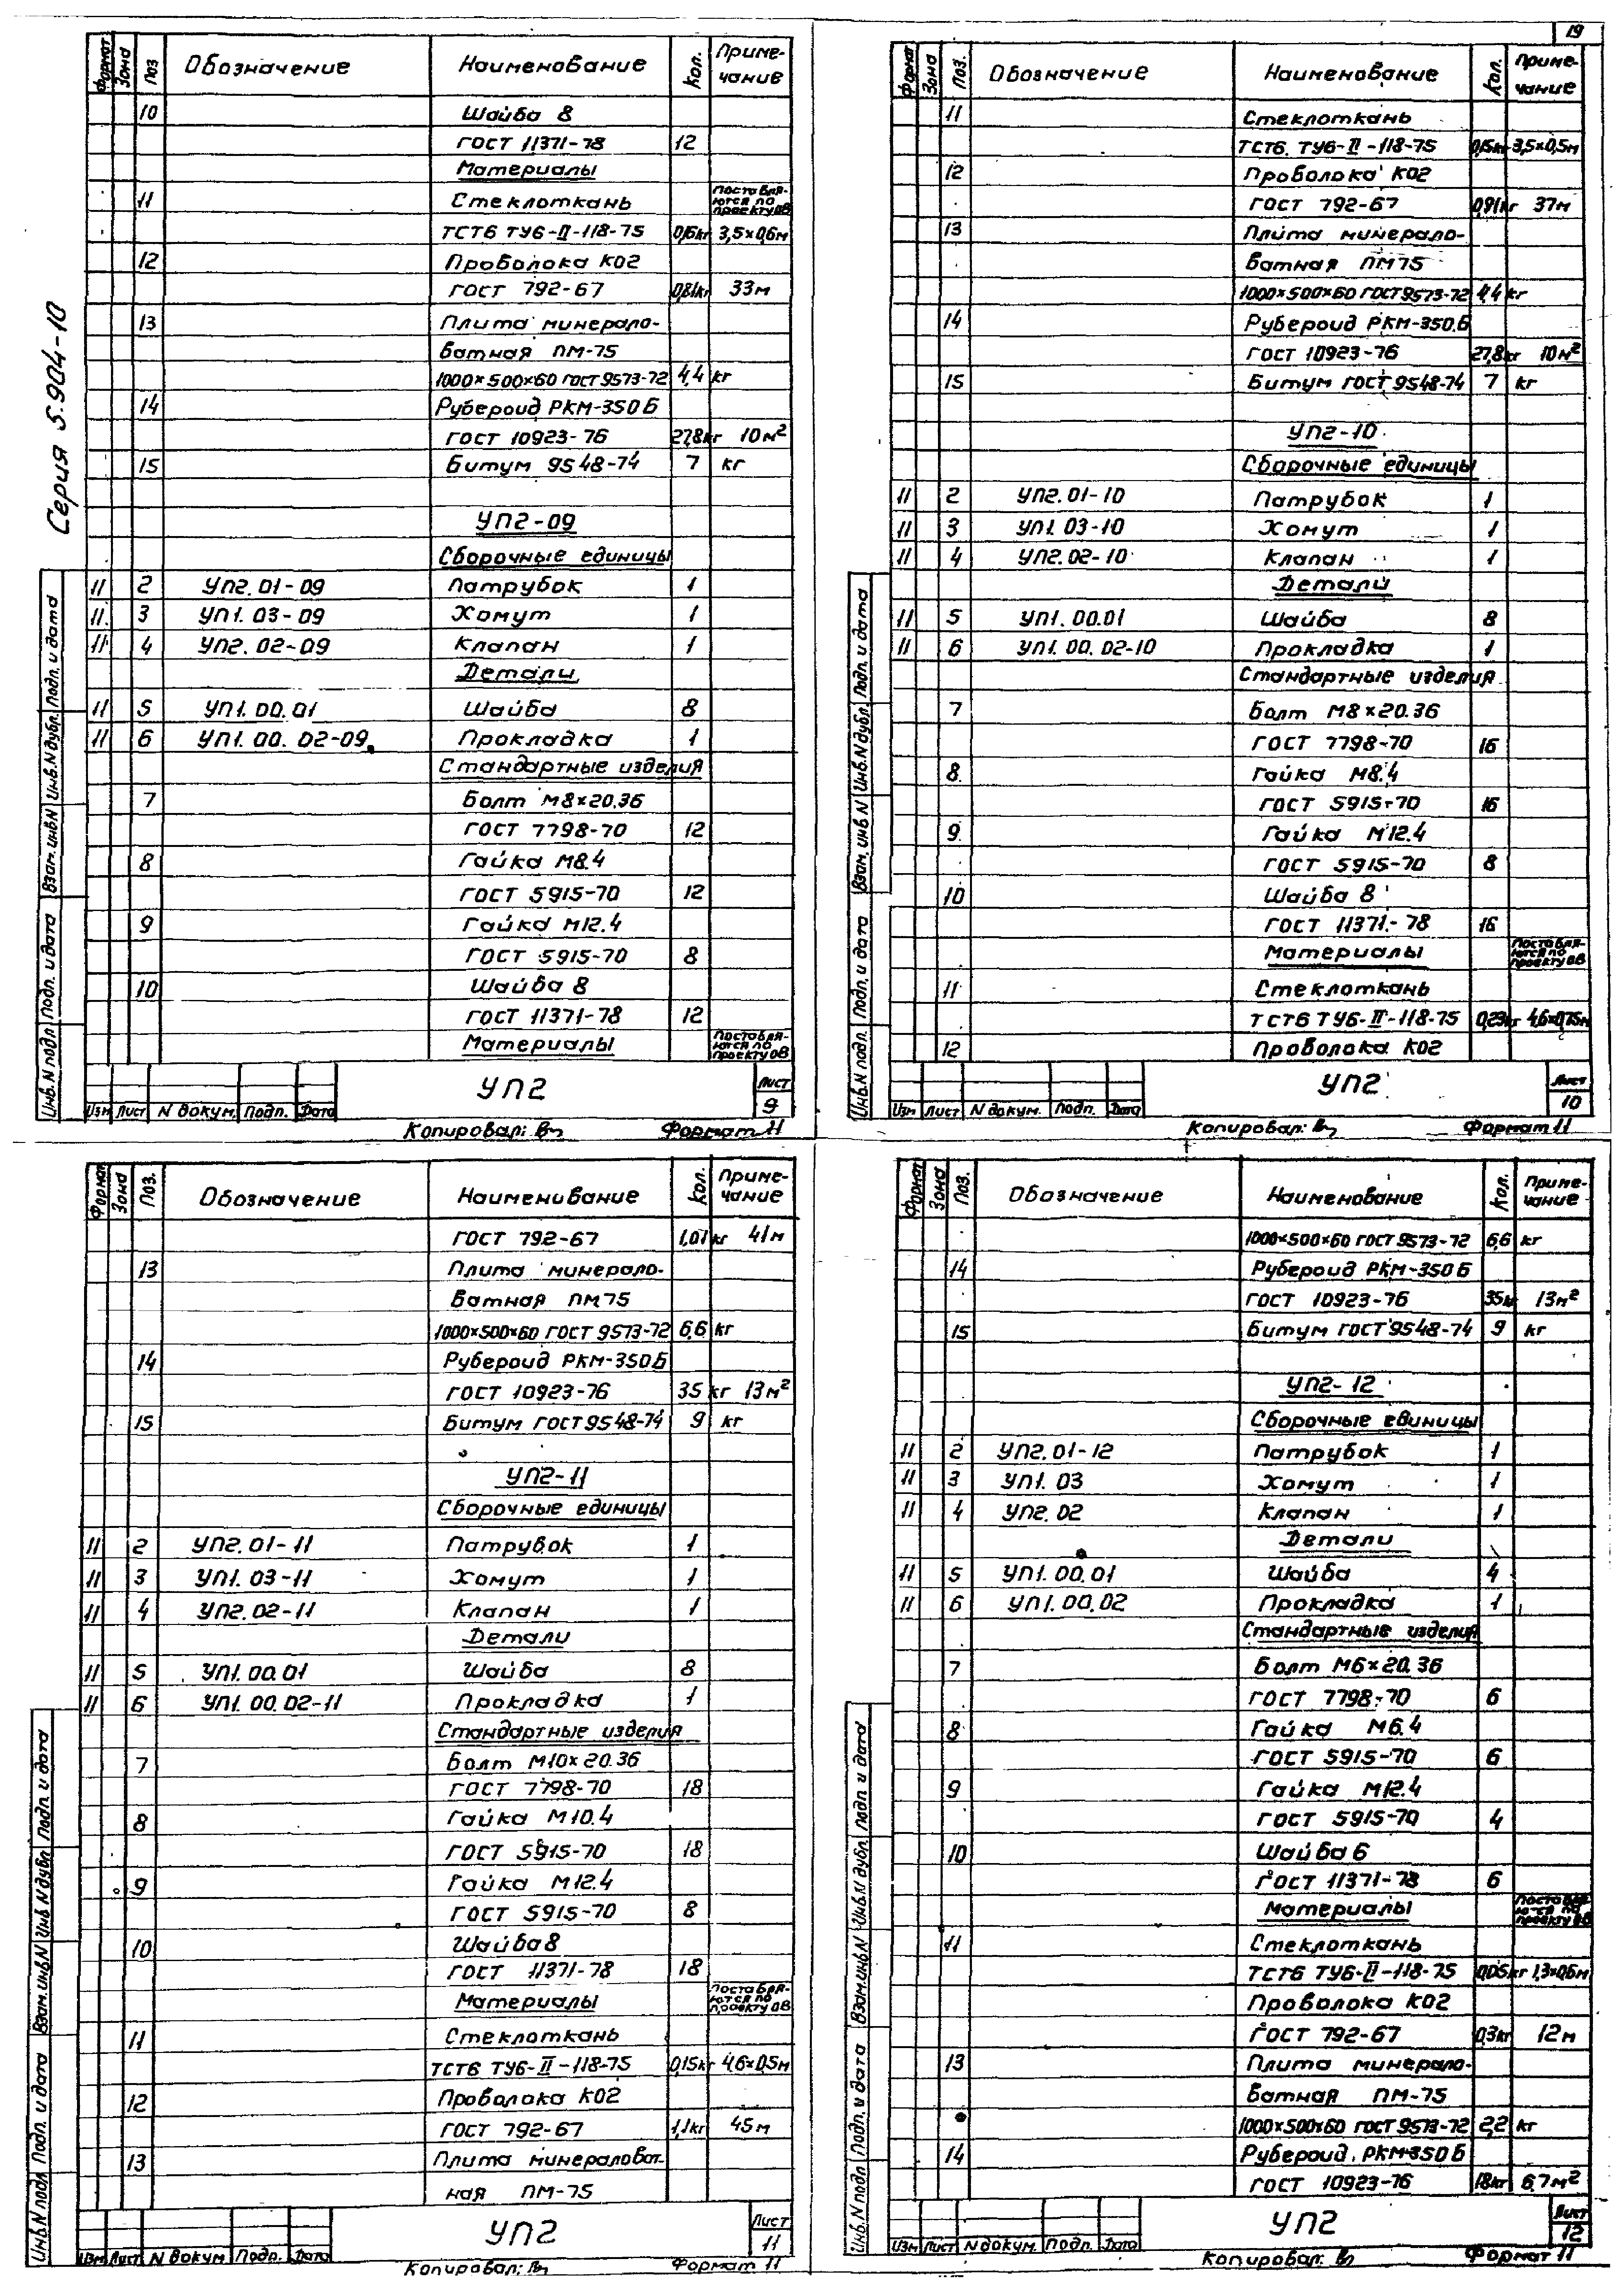 19
Серия 5.904-10
Формат Зона Поз Обозначение Наименование Кол. Приме-
чание
10 Шайба 8
ГОСТ 11371-78 12
Материалы
11 Стеклоткань Поставля-
ются по
проекту ОВ
ТСТ6 ТУ6-II-118-75 0,16кг 3,5×0,6м
12 Проволока КО2
ГОСТ 792-67 0,81кг 33м
13 Плита минерало-
ватная ПМ-75
1000×500×60 ГОСТ 9573-72 4,4 кг
14 Рубероид РКМ-350Б
ГОСТ 10923-76 27,8кг 10м²
15 Битум 9548-74 7 кг
УП2-09
Сборочные единицы
11 2 УП2.01-09 Патрубок 1
11 3 УП1.03-09 Хомут 1
11 4 УП2.02-09 Клапан 1
Детали
11 5 УП1.00.01 Шайба 8
11 6 УП1.00.02-09 Прокладка 1
Стандартные изделия
7 Болт М8×20.36
ГОСТ 7798-70 12
8 Гайка М8.4
ГОСТ 5915-70 12
9 Гайка М12.4
ГОСТ 5915-70 8
10 Шайба 8
ГОСТ 11371-78 12
Материалы Поставля-
ются по
проекту ОВ
Инв.N подл. Подп. и дата Взам. инв N Инв.N дубл. Подп. и дата
Изм Лист N докум. Подп. Дата УП2 Лист 9
Копировал: Формат 11
Формат Зона Поз. Обозначение Наименование Кол. Приме-
чание
11 Стеклоткань
ТСТ6. ТУ6-II-118-75 0,15кг 3,5×0,5м
12 Проволока КО2
ГОСТ 792-67 0,91кг 37м
13 Плита минерало-
ватная ПМ75
1000×500×60 ГОСТ 9573-72 4,4 кг
14 Рубероид РКМ-350.Б
ГОСТ 10923-76 27,8кг 10м²
15 Битум ГОСТ 9548-74 7 кг
УП2-10
Сборочные единицы
11 2 УП2.01-10 Патрубок 1
11 3 УП1.03-10 Хомут 1
11 4 УП2.02-10 Клапан 1
Детали
11 5 УП1.00.01 Шайба 8
11 6 УП1.00.02-10 Прокладка 1
Стандартные изделия
7 Болт М8×20.36
ГОСТ 7798-70 16
8 Гайка М8.4
ГОСТ 5915-70 16
9 Гайка М12.4
ГОСТ 5915-70 8
10 Шайба 8
ГОСТ 11371-78 16
Материалы Поставля-
ются по
проекту ОВ
11 Стеклоткань
ТСТ6 ТУ6-II-118-75 0,23кг 4,6×0,75м
12 Проволока КО2
Инв.N подл. Подп. и дата Взам. инв N Инв.N дубл. Подп. и дата
Изм Лист N докум. Подп. Дата УП2 Лист 10
Копировал: Формат 11
Формат Зона Поз. Обозначение Наименование Кол. Приме-
чание
ГОСТ 792-67 1,01кг 41м
13 Плита минерало-
ватная ПМ75
1000×500×60 ГОСТ 9573-72 6,6 кг
14 Рубероид РКМ-350Б
ГОСТ 10923-76 35 кг 13м²
15 Битум ГОСТ 9548-74 9 кг
УП2-11
Сборочные единицы
11 2 УП2.01-11 Патрубок 1
11 3 УП1.03-11 Хомут 1
11 4 УП2.02-11 Клапан 1
Детали
11 5 УП1.00.01 Шайба 8
11 6 УП1.00.02-11 Прокладка 1
Стандартные изделия
7 Болт М10×20.36
ГОСТ 7798-70 18
8 Гайка М10.4
ГОСТ 5915-70 18
9 Гайка М12.4
ГОСТ 5915-70 8
10 Шайба 8
ГОСТ 11371-78 18
Материалы Поставля-
ются по
проекту ОВ
11 Стеклоткань
ТСТ6 ТУ6-II-118-75 0,15кг 4,6×0,5м
12 Проволока КО2
ГОСТ 792-67 1,1кг 45м
13 Плита минераловат-
ная ПМ-75
Инв.N подл Подп. и дата Взам.инв N Инв N дубл Подп. и дата
Изм Лист N докум. Подп. Дата УП2 Лист 11
Копировал: Формат 11
Формат Зона Поз. Обозначение Наименование Кол. Приме-
чание
1000×500×60 ГОСТ 9573-72 6,6 кг
14 Рубероид РКМ-350Б
ГОСТ 10923-76 35кг 13м²
15 Битум ГОСТ 9548-74 9 кг
УП2-12
Сборочные единицы
11 2 УП2.01-12 Патрубок 1
11 3 УП1.03 Хомут 1
11 4 УП2.02 Клапан 1
Детали
11 5 УП1.00.01 Шайба 4
11 6 УП1.00.02 Прокладка 1
Стандартные изделия
7 Болт М6×20.36
ГОСТ 7798-70 6
8 Гайка М6.4
ГОСТ 5915-70 6
9 Гайка М12.4
ГОСТ 5915-70 4
10 Шайба 6
ГОСТ 11371-78 6
Материалы Поставля-
ются по
проекту ОВ
11 Стеклоткань
ТСТ6 ТУ6-II-118-75 0,05кг 1,3×0,6м
Проволока КО2
ГОСТ 792-67 0,3кг 12м
13 Плита минерало-
ватная ПМ-75
1000×500×60 ГОСТ 9573-72 2,2 кг
14 Рубероид РКМ-350Б
ГОСТ 10923-76 18кг 6,7м²
Инв.N подл Подп. и дата Взам.инв N Инв.N дубл. Подп. и дата
Изм Лист N докум. Подп. Дата УП2 Лист 12
Копировал: Формат 11